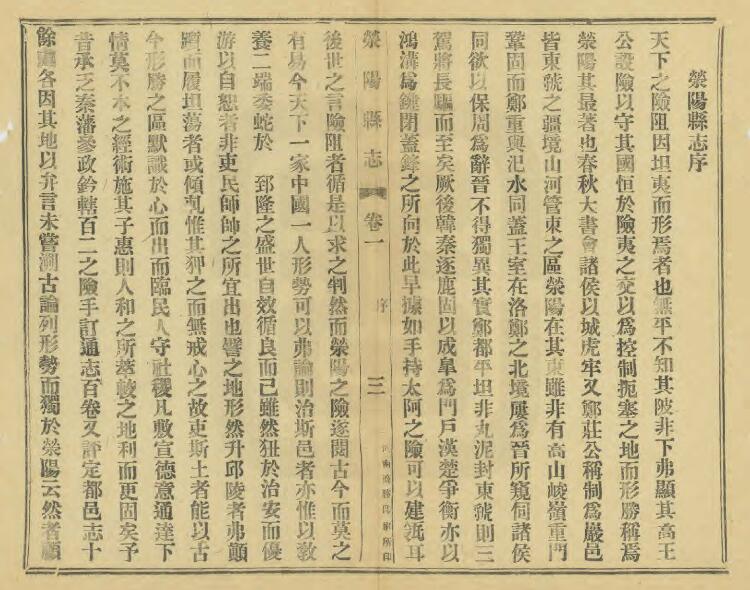 滎陽縣志序
天下之險阻因坦夷而形焉者也無平不知其陂非下弗顯其高王
公設險以守其國恒於險夷之交以爲控制扼塞之地而形勝稱焉
滎陽其最著也春秋大書會諸侯以城虎牢又鄭莊公稱制爲巖邑
皆東虢之疆境山河管束之區滎陽在其東雖非有高山峻嶺重門
鞏固而鄭重與汜水同蓋王室在洛鄭之北境屢爲晉所窺伺諸侯
同欲以保周爲辭晉不得獨異其實鄭都平坦非丸泥封東虢則三
駕將長驅而至矣厥後韓秦逐鹿固以成臯爲門戶漢楚爭衡亦以
鴻溝爲鍵閉蓋鋒之所向於此早據如手持太阿之險可以建瓴耳
滎陽縣志 卷一 序 三
後世之言險阻者循是以求之判然而滎陽之險遂閱古今而莫之
有易今天下一家中國一人形勢可以弗論則治斯邑者亦惟以敎
養二端委蛇於 郅隆之盛世自效循良而已雖然狃於治安而優
游以自恕者非吏民師帥之所宜出也譬之地形然升邱陵者弗顚
躓而履坦蕩者或傾軋惟其狎之而無戒心之故吏斯土者能以古
今形勝之區默識於心而出而臨民人守社稷凡敷宣德意通達下
情莫不本之經術施其子惠則人和之所萃較之地利而更固矣予
昔承乏秦藩參政鈐轄百二之險手訂通志百卷又評定都邑志十
餘種各因其地以弁言未嘗溯古論列形勢而獨於滎陽云然者顧